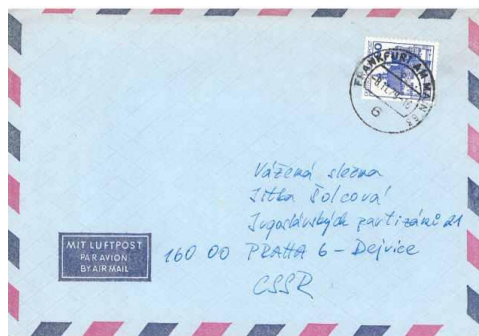 FRANKFURT AM MAIN
6
Vážená slečna
Jitka Šolcová
Jugoslávských partizánů 21
160 00 PRAHA 6 - Dejvice
ČSSR
MIT LUFTPOST
PAR AVION
BY AIR MAIL